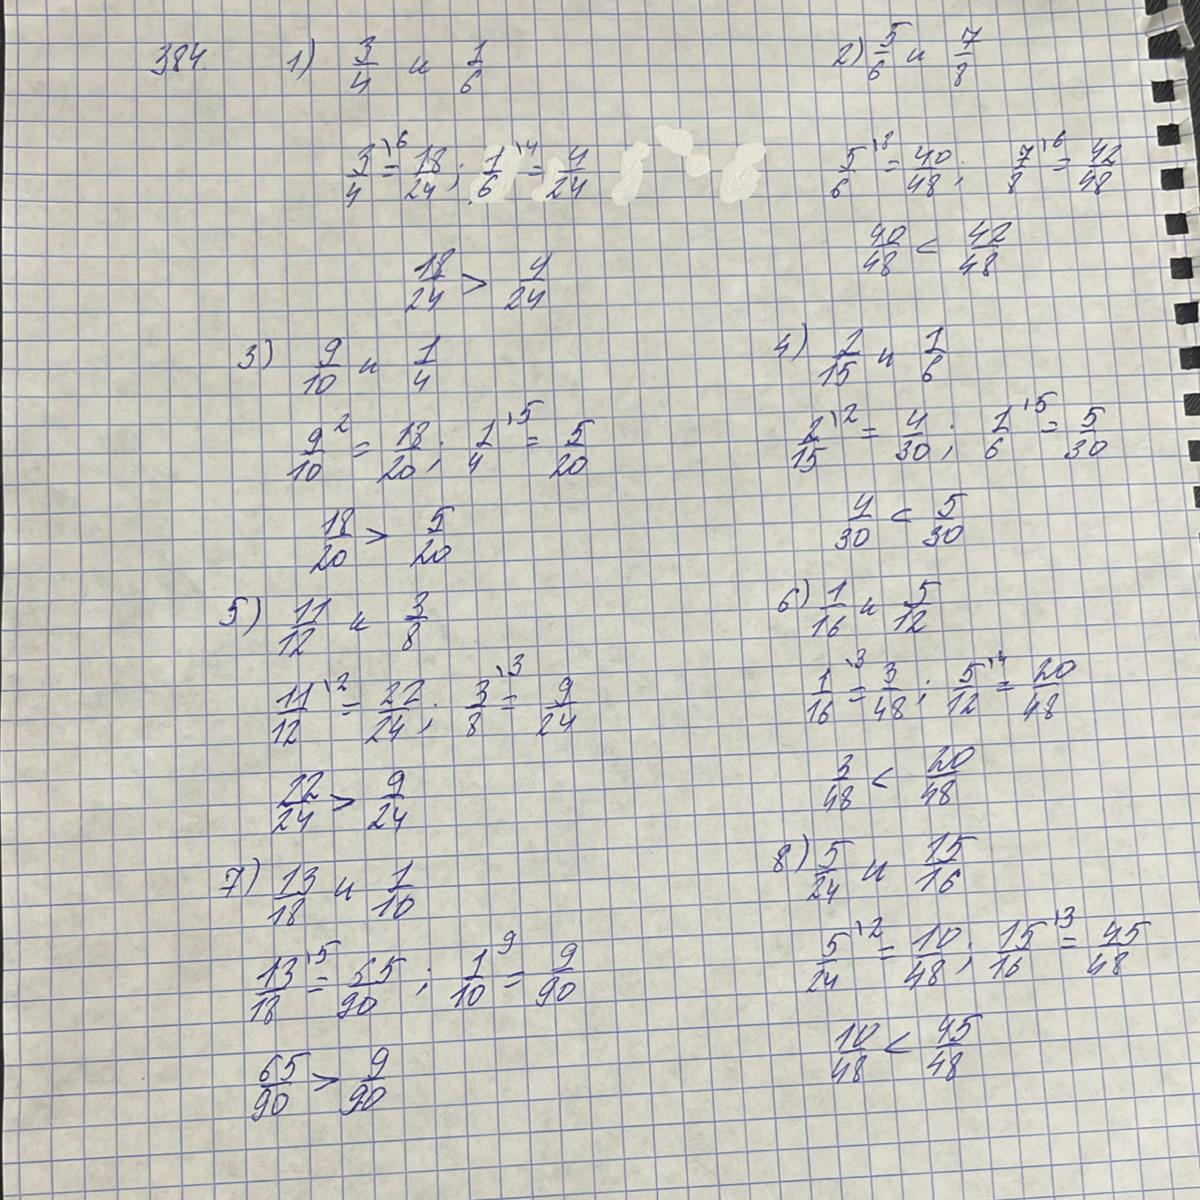 384. 1) 3/4 и 1/6
3/4 \6 = 18/24; 1/6 \4 = 4/24
18/24 > 4/24
2) 5/6 и 7/8
5/6 \8 = 40/48; 7/8 \6 = 42/48
40/48 < 42/48
3) 9/10 и 1/4
9/10 2 = 18/20; 1/4 \5 = 5/20
18/20 > 5/20
4) 2/15 и 1/6
2/15 \2 = 4/30; 1/6 \5 = 5/30
4/30 < 5/30
5) 11/12 и 3/8
11/12 \2 = 22/24; 3/8 \3 = 9/24
22/24 > 9/24
6) 1/16 и 5/12
1/16 \3 = 3/48; 5/12 \4 = 20/48
3/48 < 20/48
7) 13/18 и 1/10
13/18 \5 = 65/90; 1/10 9 = 9/90
65/90 > 9/90
8) 5/24 и 15/16
5/24 \2 = 10/48; 15/16 \3 = 45/48
10/48 < 45/48